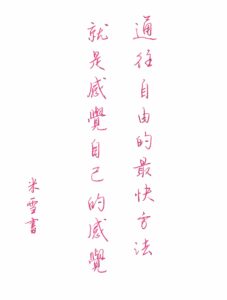 通往自由的最快方法
就是感覺自己的感覺
米雪書